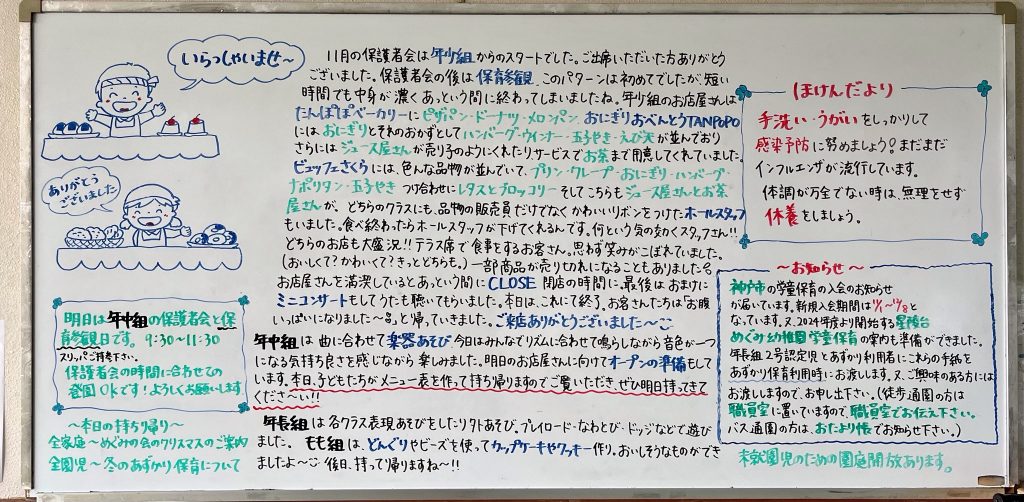 いらっしゃいませ~
ありがとう
ございました
11月の保護者会は年少組からのスタートでした。ご出席いただいた方ありがとう
ございました。保護者会の後は保育参観、このパターンは初めてでしたが、短い
時間でも中身が濃くあっという間に終わってしまいましたね。年少組のお店屋さんは
たんぽぽベーカリーにピザパン・ドーナツ・メロンパン、おにぎりおべんとうTANPOPO
にはおにぎりとそれのおかずとしてハンバーグ・ウインナー・玉子やき・えび天が並んでおり
さらにはジュース屋さんが売り子のようにくれたりサービスでお茶まで用意してくれていました。
ビュッフェさくらには、色んな品物が並んでいて、プリン・クレープ・おにぎり・ハンバーグ・
ナポリタン・玉子やき つけ合わせにレタスとブロッコリー そしてこちらもジュース屋さんとお茶
屋さんが、どちらのクラスにも、品物の販売員だけでなくかわいいリボンをつけたホールスタッフ
もいました。食べ終わったらホールスタッフが下げてくれるんです。何という気の効くスタッフさん!!
どちらのお店も大盛況!!テラス席で食事をするお客さん。思わず笑みがこぼれていました。
(おいしくて?かわいくて?きっとどちらも。)一部商品が売り切れになることもありました。
お店屋さんを満喫しているとあっという間にCLOSE 閉店の時間に。最後はおまけに
ミニコンサートもしてうたも聴いてもらいました。本日は、これにて終了。お客さんたちは「お腹
いっぱいになりました~」と帰っていきました。ご来店ありがとうございました~
年中組は 曲に合わせて楽器あそび 今日はみんなでリズムに合わせて鳴らしながら音色が一つ
になる気持ち良さを感じながら 楽しみました。明日のお店屋さんに向けてオープンの準備もして
います。本日、子どもたちがメニュー表を作って持ち帰りますのでご覧いただき、ぜひ明日持ってきて
くださ~い!!
年長組は各クラス表現あそびをしたりタトあそぶ、プレイロード・なわとび・ドッジなどで遊び
ました。 もも組は、どんぐりやビーズを使ってカップケーキやクッキー作り。おいしそうなものができ
ましたよ~ 後日、持って帰りますね~!!
明日は年中組の保護者会と保
育参観日です。9:30~11:30
スリッパご持参下さい。
保護者会の時間に合わせての
登園OKです!よろしくお願いします
~本日の持ち帰り~
全家庭~めぐみの会のクリスマスのご案内
全園児~冬のあずかり保育について
ほけんだより
手洗い・うがいをしっかりして
感染予防に努めましょう!まだまだ
インフルエンザが流行しています。
体調が万全でない時は、無理をせず
休養をしましょう。
~お知らせ~
神戸市の学童保育の入会のお知らせ
が届いています。新規入会期間は11/1~12/8と
なっています。又、2024年度より開始する星陵台
めぐみ幼稚園学童保育の案内も準備ができました。
年長組2号認定児とあずかり利用者にこれらの手紙を
あずかり保育利用時にお渡します。又、ご興味のある方には
お渡しますので、お申し出下さい。(徒歩通園の方は
職員室に置いていますので、職員室でお伝え下さい。
バス通園の方は、おたより帳でお知らせ下さい。)
未就園児のための園庭開放あります。